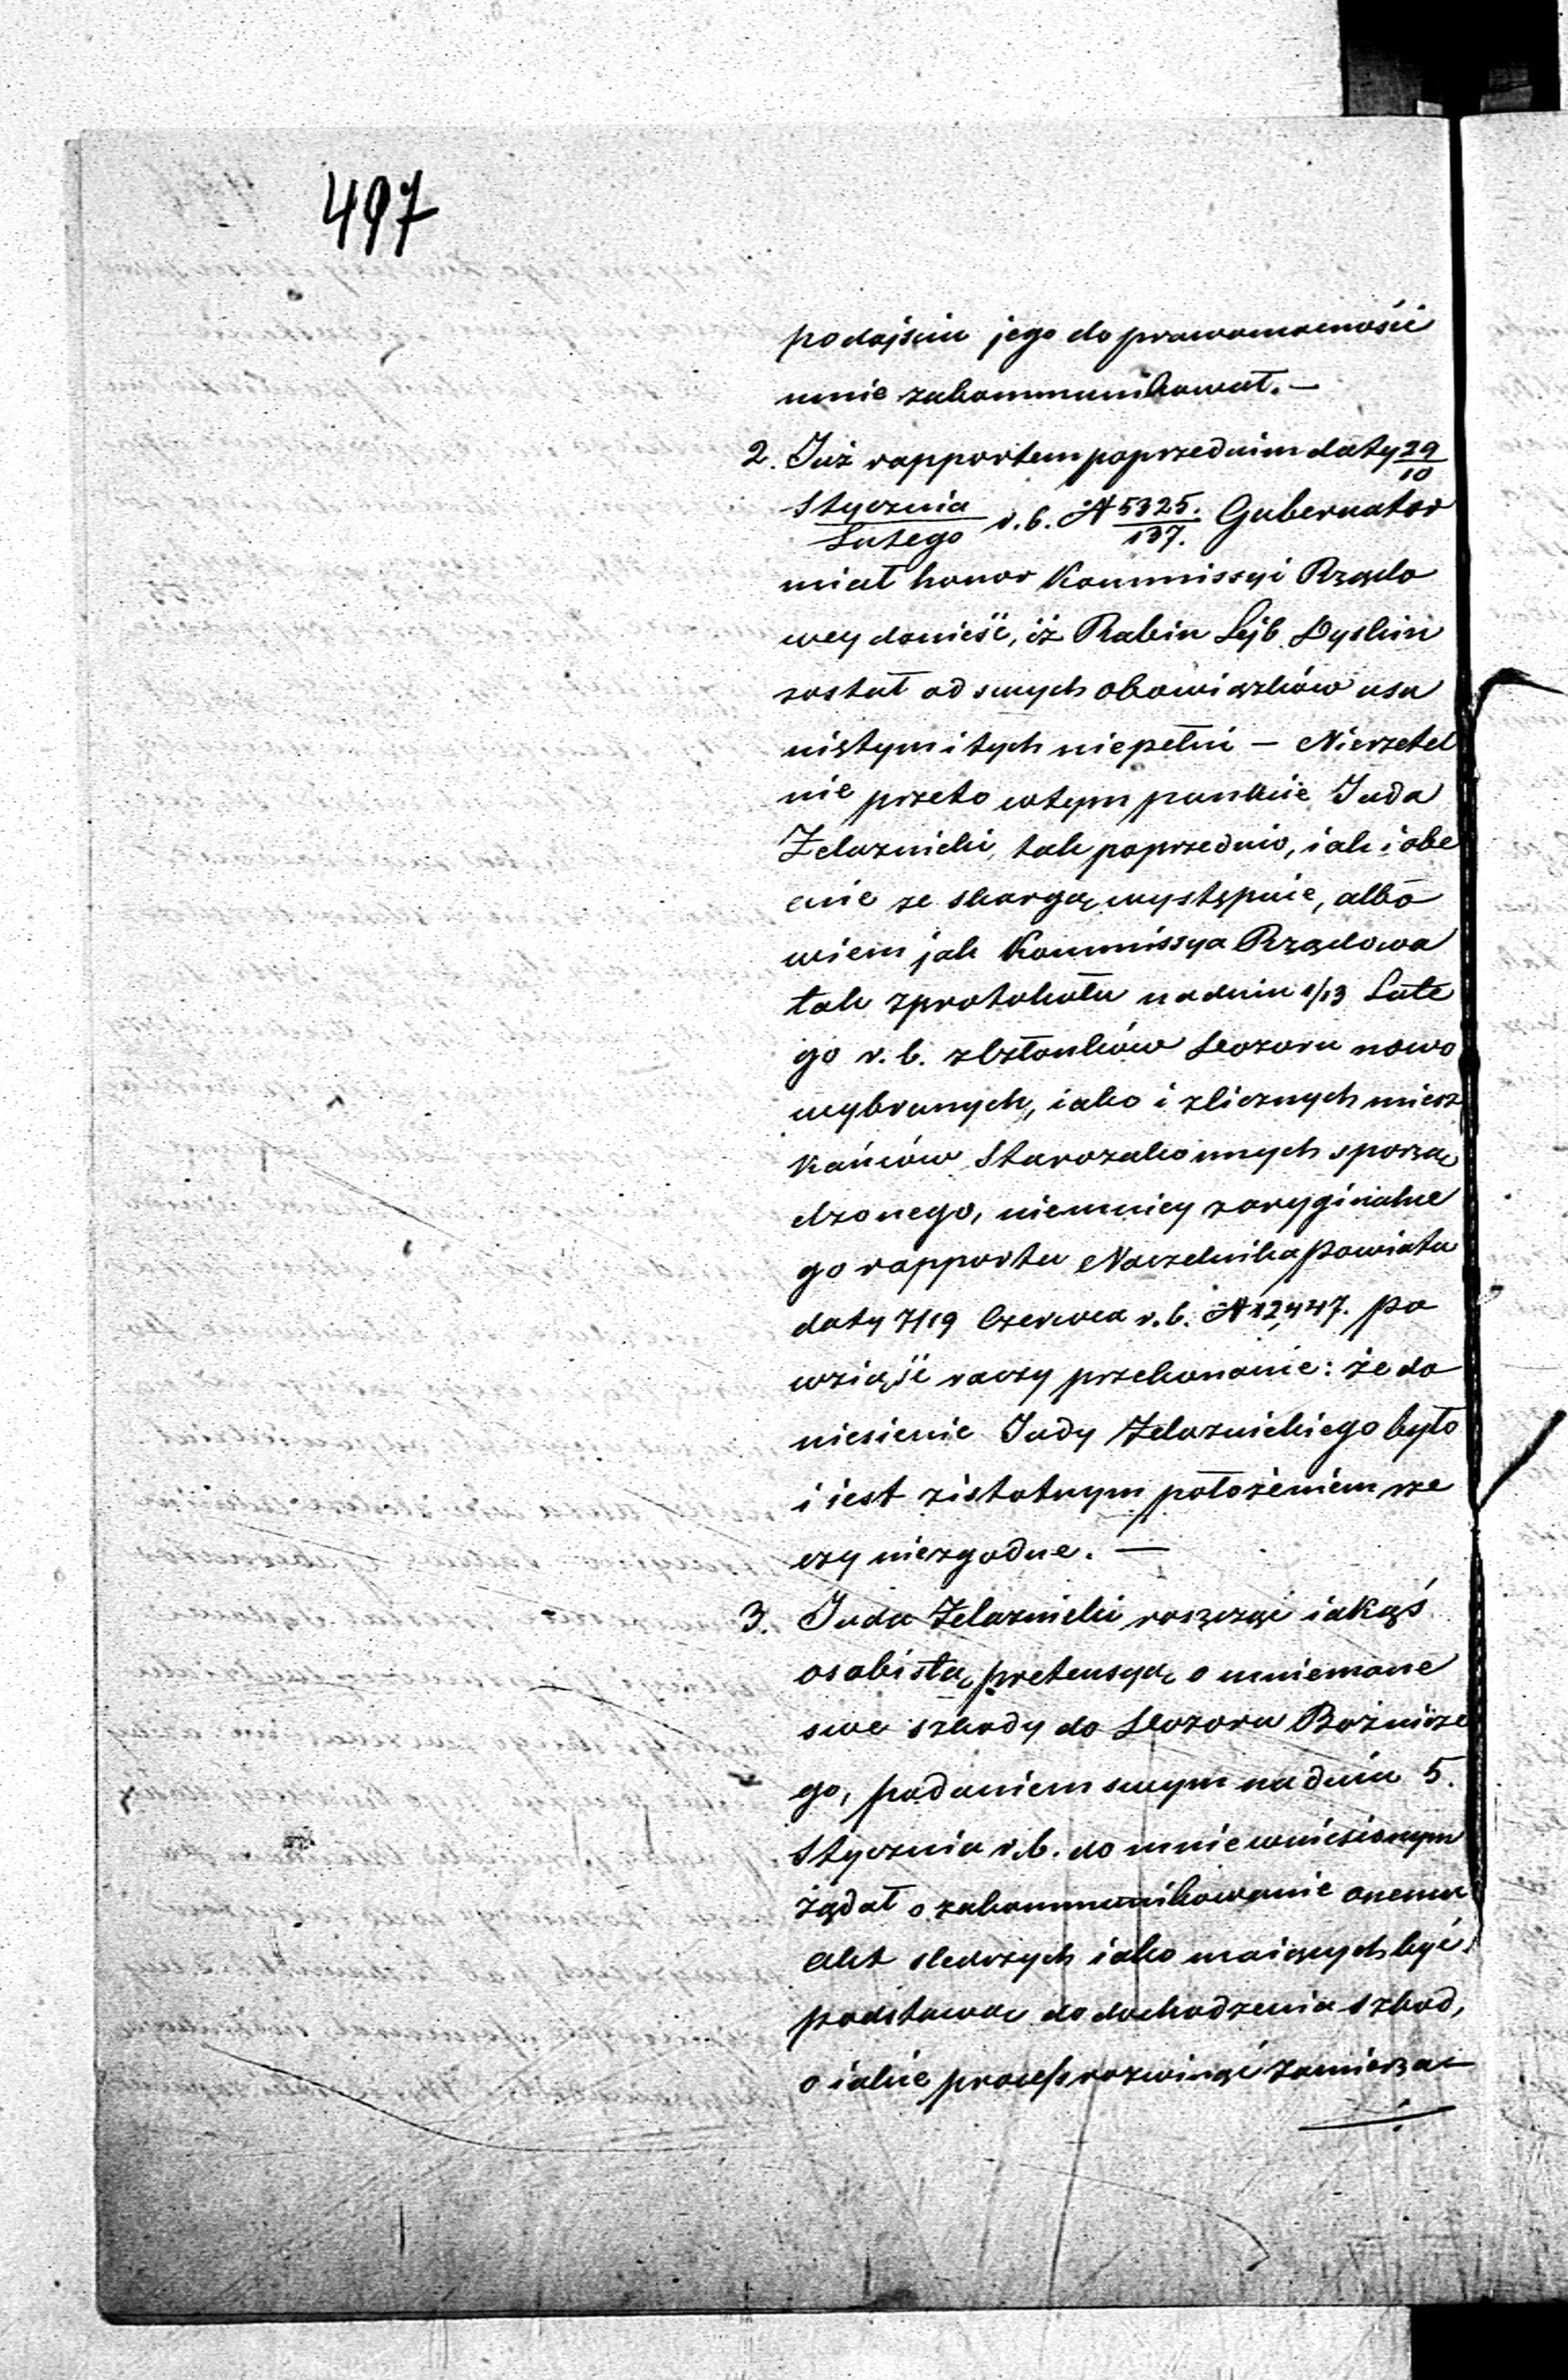 497
podojściu jego do prawomocności
mnie zakommunikował. —
2. Już rapportem poprzednim daty 29/10
Stycznia/Lutego r. b. № 5325./137. Gubernator
miał honor Kommissyi Rządo
wey donieść, iż Rabin Lejb Dyskin
został od swych obowiązków usu
niętym i tych niepełni — Nierzetel
nie przeto w tym punkcie Juda
Żelaznicki, tak poprzednio, iak i obe
cnie ze skargą występuie, albo
wiem jak Kommissya Rządowa
tak z protokołu na dniu 1/13 Lute
go r. b. z Członków Dozoru nowo
wybranych, iako i z licznych miesz
kańców Starozakonnych sporzą
dzonego, niemniey z oryginalne
go rapportu Naczelnika Powiatu
daty 7/19 Czerwca r. b. № 12,447. po
wziąść raczy przekonanie: że do
niesienie Judy Żelaznickiego było
i iest z istotnym położeniem rze
czy niezgodne. —
3. Juda Żelaznicki roszcząc iakąś
osobistą pretensyą o mniemane
swe szkody do Dozoru Bożnicze
go, podaniem swym na dniu 5.
Stycznia r. b. do mnie wniesionym
żądał o zakommunikowanie onemu
akt śledczych iako maiących być
podstawą do dochodzenia szkód,
o iakie proces rozwinąć zamierza